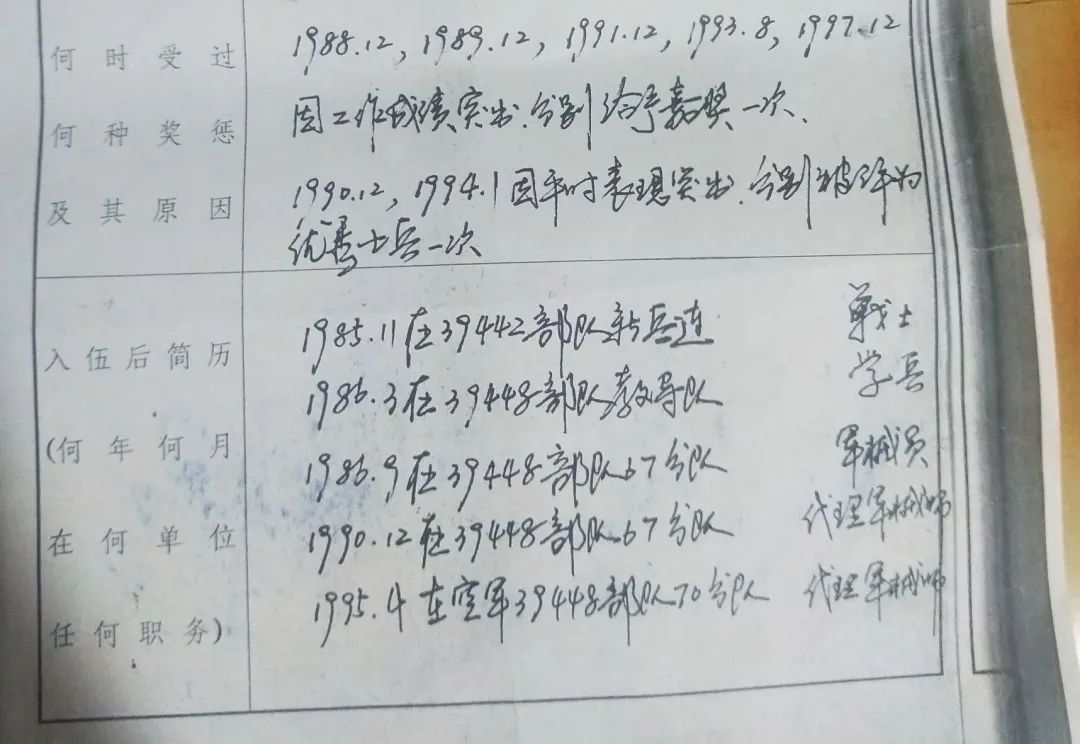 何时受过
何种奖惩
及其原因
1988.12, 1989.12, 1991.12, 1993.8, 1997.12
因工作成绩突出.分别给予嘉奖一次.
1990.12, 1994.1因平时表现突出.分别被评为
优秀士兵一次
入伍后简历
(何年何月
在何单位
任何职务)
1985.11在39442部队新兵连 战士
1986.3在39448部队教导队 学兵
1986.9在39448部队67分队 军械员
1990.12在39448部队67分队 代理军械师
1995.4在空军39448部队70分队 代理军械师